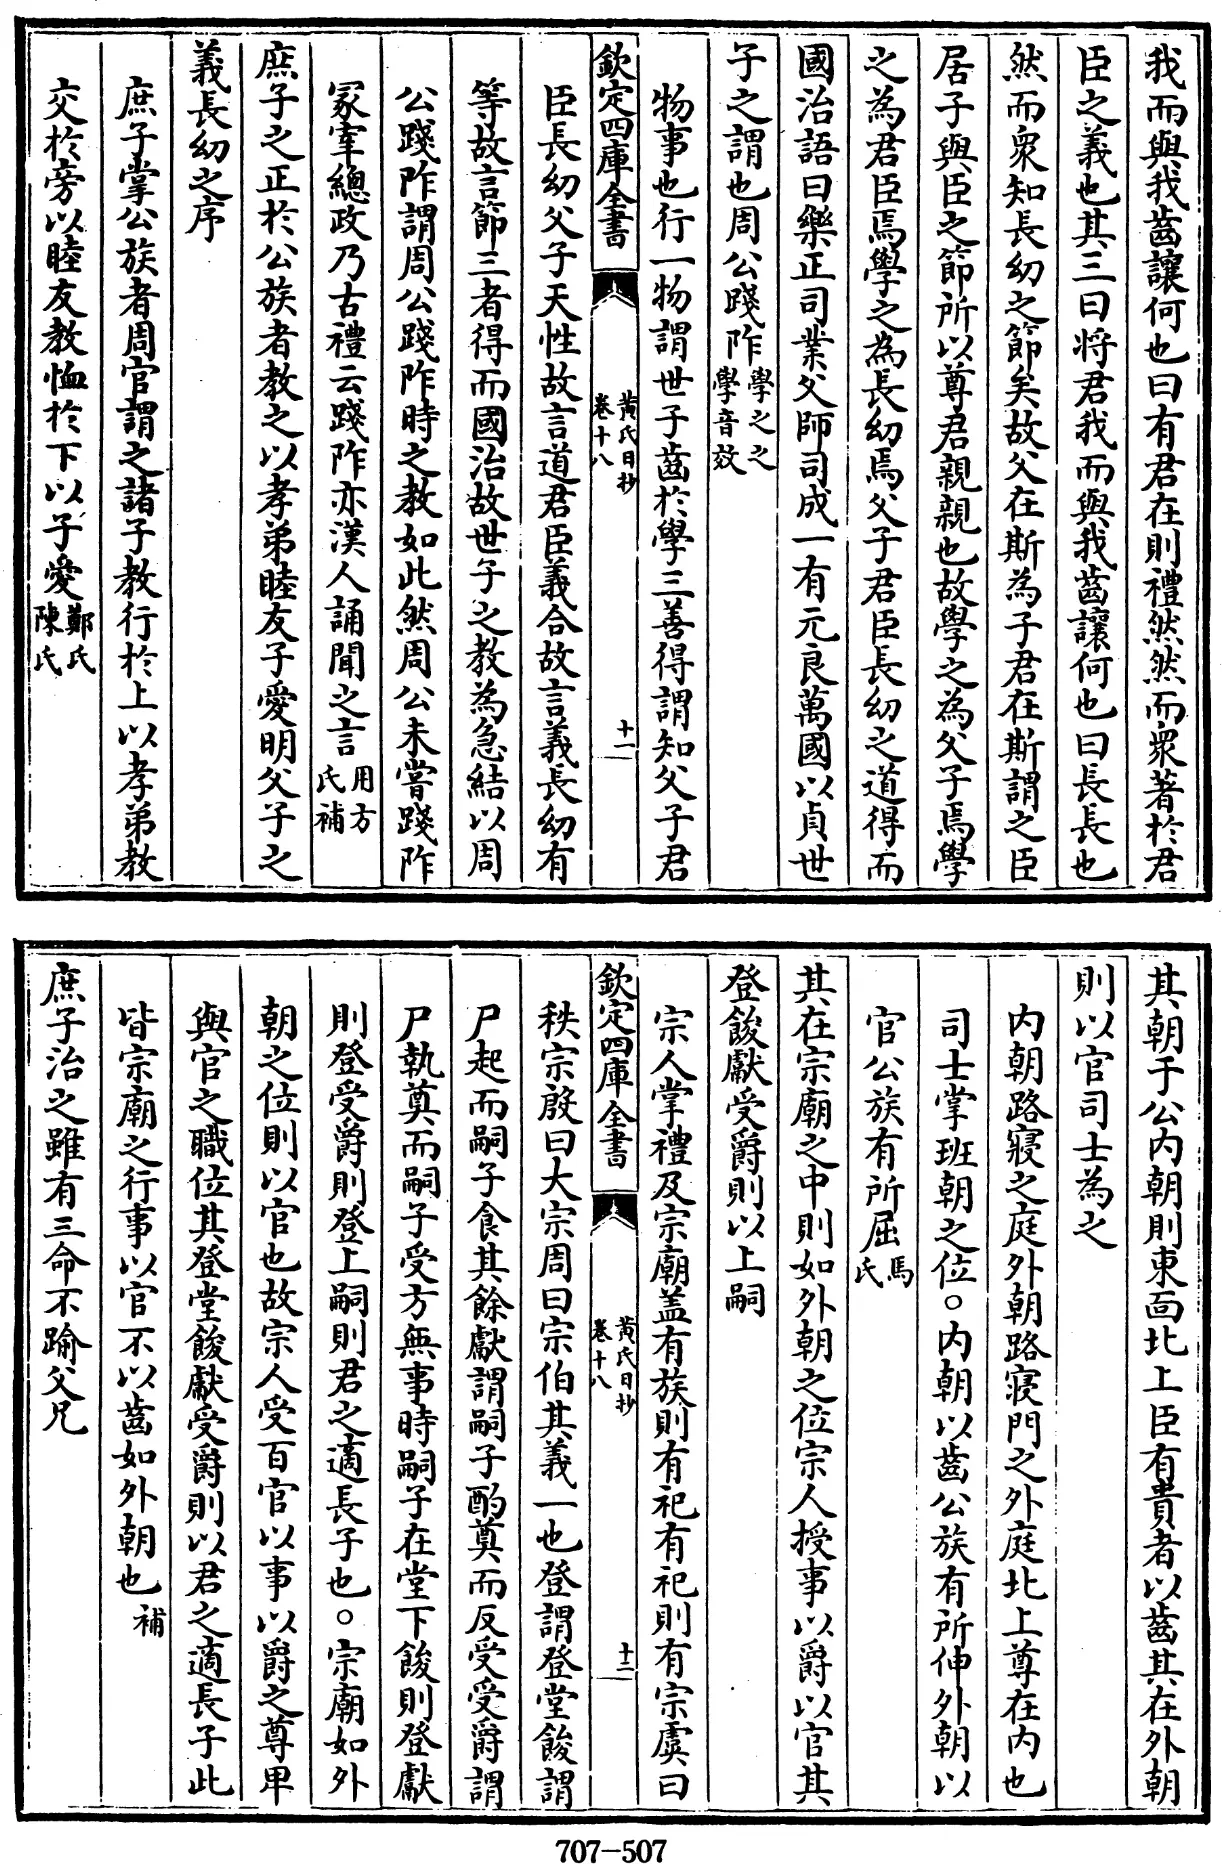 我而與我齒讓何也曰有君在則禮然然而衆著於君
臣之義也其三曰將君我而與我齒讓何也曰長長也
然而衆知長幼之節矣故父在斯為子君在斯謂之臣
居子與臣之節所以尊君親親也故學之為父子焉學
之為君臣焉學之為長幼焉父子君臣長幼之道得而
國治語曰樂正司業父師司成一有元良萬國以貞世
子之謂也周公踐阼學之之學音效
物事也行一物謂世子齒於學三善得謂知父子君
欽定四庫全書 黃氏日抄卷十八 十一
臣長幼父子天性故言道君臣義合故言義長幼有
等故言節三者得而國治故世子之教為急結以周
公踐阼謂周公踐阼時之教如此然周公未嘗踐阼
冢宰總政乃古禮云踐阼亦漢人誦聞之言用方氏補
庶子之正於公族者教之以孝弟睦友子愛明父子之
義長幼之序
庶子掌公族者周官謂之諸子教行於上以孝弟教
交於旁以睦友教恤於下以子愛鄭氏陳氏
其朝于公内朝則東面北上臣有貴者以齒其在外朝
則以官司士為之
内朝路寢之庭外朝路寢門之外庭北上尊在内也
司士掌班朝之位○内朝以齒公族有所伸外朝以
官公族有所屈馬氏
其在宗廟之中則如外朝之位宗人授事以爵以官其
登餕獻受爵則以上嗣
宗人掌禮及宗廟盖有族則有祀有祀則有宗虞曰
欽定四庫全書 黃氏日抄卷十八 十二
秩宗殷曰大宗周曰宗伯其義一也登謂登堂餕謂
尸起而嗣子食其餘獻謂嗣子酌奠而反受受爵謂
尸執奠而嗣子受方無事時嗣子在堂下餕則登獻
則登受爵則登上嗣則君之適長子也○宗廟如外
朝之位則以官也故宗人受百官以事以爵之尊卑
與官之職位其登堂餕獻受爵則以君之適長子此
皆宗廟之行事以官不以齒如外朝也補
庶子治之雖有三命不踰父兄
707-507